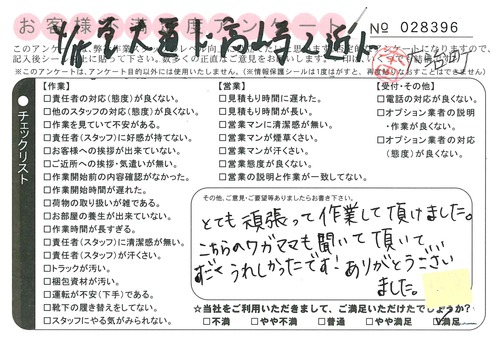 お客様不満足度アンケート
No 028396
受付・その他
【作業】
□責任者の対応(態度)が良くない。
□他のスタッフの対応(態度)が良くない。
□作業を見ていて不安がある。
□責任者(スタッフ)に好感が持てない。
□お客様への挨拶が出来ていない。
□ご近所への挨拶・気遣いが無い。
□作業開始前の内容確認がなかった。
□作業開始時間が遅れた。
□荷物の取り扱いが雑である。
□お部屋の養生が出来ていない。
□作業時間が長すぎる。
□責任者(スタッフ)に清潔感が無い。
□責任者(スタッフ)が汗くさい。
□トラックが汚い。
□梱包資材が汚い。
□運転が不安(下手)である。
□靴下の履き替えをしてない。
□スタッフにやる気がみられない。
【営業】
□見積もり時間に遅れた。
□見積もり時間が長い。
□営業マンに清潔感が無い。
□営業マンが煙草くさい。
□営業マンが汗くさい。
□営業態度が良くない。
□営業の説明と作業が一致してない。
【受付・その他】
□電話の対応が良くない。
□オプション業者の説明
・作業が良くない。
□オプション業者の対応
(態度)が良くない。
チェックリスト
その他、ご意見・ご要望等ありましたらお書き下さい。
とても頑張って作業して頂けました。
こちらのワガママも聞いて頂いて、
すごくうれしかったです！ありがとうござい
ました。
☆当社をご利用いただきまして、ご満足いただけたでしょうか？
□不満 □やや不満 □普通 □やや満足 □満足